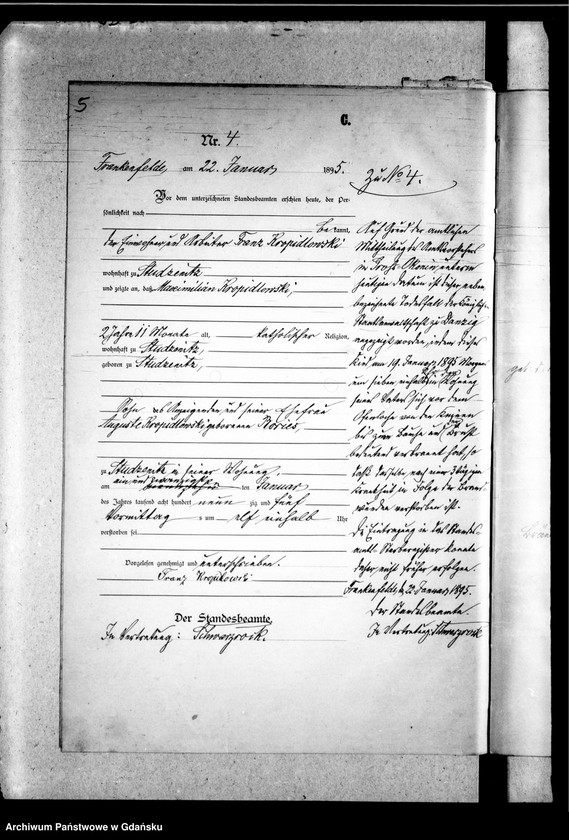 5
C.
Nr. 4.
Frankenfelde, am 22. Januar 1895.
Vor dem unterzeichneten Standesbeamten erschien heute, der Per-
sönlichkeit nach
bekannt,
der Einwohner und Arbeiter Franz Kropidlowski
wohnhaft zu Studzenitz
und zeigte an, daß Maximilian Kropidlowski,
2 Jahre 11 Monate alt, katholischer Religion,
wohnhaft zu Studzenitz,
geboren zu Studzenitz,
Sohn des Anzeigenden und seiner Ehefrau
Auguste Kropidlowski geborenen
zu Studzenitz in seiner Wohnung,
am ein und zwanzigsten ten Januar
des Jahres tausend acht hundert neun zig und fünf
Vormittag s um elf einhalb Uhr
verstorben sei
Vorgelesen genehmigt und unterschrieben.
Franz
Der Standesbeamte,
In Vertretung: Schwarzrock.
Zu No 4.
Auf Grund der amtlichen
Mittheilung des Amtsvorstehers
in Groß Okonin unterm
heutigen Datum ist dieser neben
bezeichnete Todesfall der Königlichen
Staatsanwaltschaft zu Danzig
angezeigt worden, indem dieses
Kind am 19. Januar 1895 Morgens
um sieben einhalb Uhr in der Wohnung
seines Vaters sich vor dem
Ofenloche von den Knieen
bis zum Bauche und Brust
bedeutend verbrannt hat, so
daß dasselbe nach
Krankheit in Folge der Brand-
wunden verstorben ist.
Die Eintragung in das Standes-
amtl. Sterberegister konnte
daher nicht früher erfolgen.
Frankenfelde, d. 22. Januar 1895.
Der Standesbeamte.
In Vertretung: Schwarzrock
Archiwum Państwowe w Gdańsku